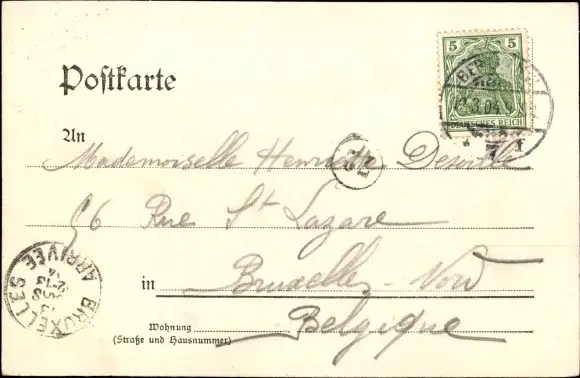 5 5
DEUTSCHES REICH
BER
3.04
Postkarte
An
Mademoiselle Henriette Deswille
56 Rue St Lazare
in Bruxelles - Nord
Belgique
Wohnung
(Straße und Hausnummer)
BRUXELLES
ARRIVÉE